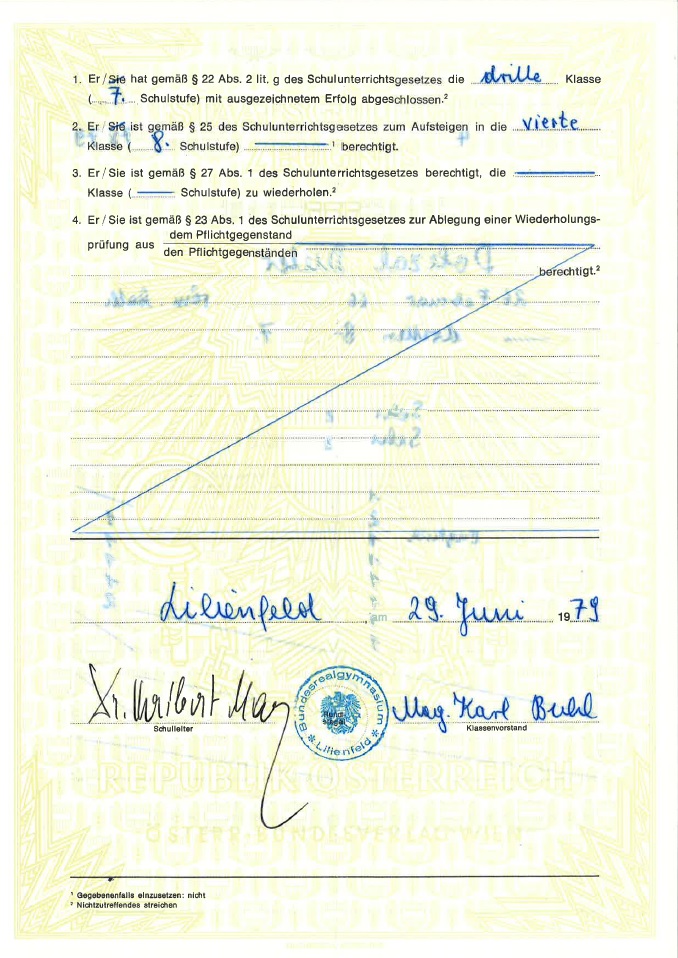 1. Er / Sie hat gemäß § 22 Abs. 2 lit. g des Schulunterrichtsgesetzes die dritte Klasse
( 7. Schulstufe) mit ausgezeichnetem Erfolg abgeschlossen.²
2. Er / Sie ist gemäß § 25 des Schulunterrichtsgesetzes zum Aufsteigen in die vierte
Klasse ( 8. Schulstufe) ¹ berechtigt.
3. Er / Sie ist gemäß § 27 Abs. 1 des Schulunterrichtsgesetzes berechtigt, die
Klasse ( Schulstufe) zu wiederholen.²
4. Er / Sie ist gemäß § 23 Abs. 1 des Schulunterrichtsgesetzes zur Ablegung einer Wiederholungs-
dem Pflichtgegenstand
prüfung aus
den Pflichtgegenständen
berechtigt.²
Lilienfeld, am 29. Juni 1979
Dr. May
Mag. Karl
Schulleiter
Klassenvorstand
Bundesrealgymnasium
* Lilienfeld *
REPUBLIK ÖSTERREICH
ÖSTERR. BUNDESVERLAG WIEN
¹ Gegebenenfalls einzusetzen: nicht
² Nichtzutreffendes streichen